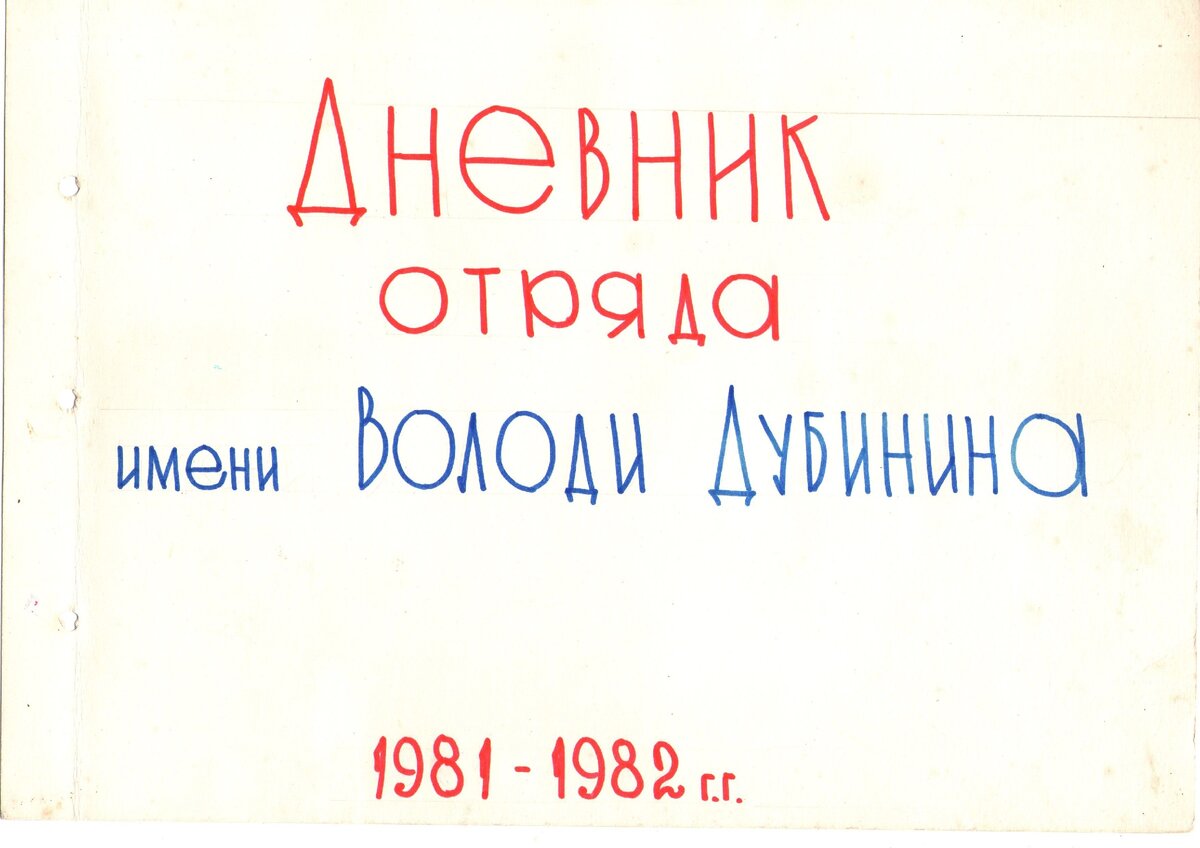 Дневник
отряда
имени Володи Дубинина
1981-1982 г.г.